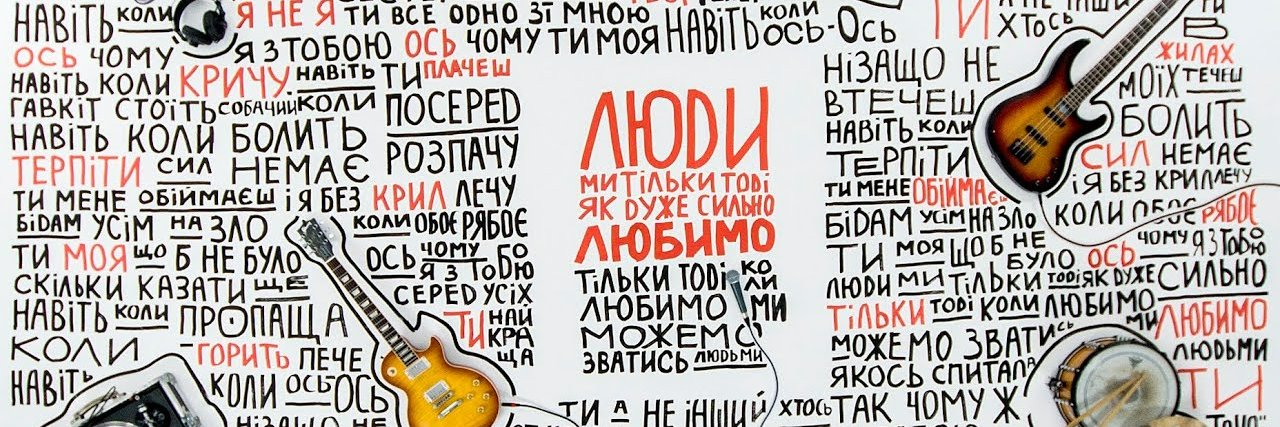 НАВІТЬ КОЛИ Я НЕ Я ТИ ВСЕ ОДНО ЗІ МНОЮ
ОСЬ ЧОМУ Я З ТОБОЮ ОСЬ ЧОМУ ТИ МОЯ НАВІТЬ КОЛИ ОСЬ-ОСЬ
НАВІТЬ КОЛИ КРИЧУ НАВІТЬ ТИ ПЛАЧЕШ
ГАВКІТ СТОЇТЬ СОБАЧИЙ КОЛИ ПОСЕРЕД
НАВІТЬ КОЛИ БОЛИТЬ РОЗПАЧУ
ТЕРПІТИ СИЛ НЕМАЄ
ТИ МЕНЕ ОБІЙМАЄШ І Я БЕЗ КРИЛ ЛЕЧУ
БІДАМ УСІМ НА ЗЛО КОЛИ ОБОЄ РЯБОЄ
ТИ МОЯ ЩО Б НЕ БУЛО ОСЬ ЧОМУ Я З ТОБОЮ
СКІЛЬКИ КАЗАТИ ЩЕ СЕРЕД УСІХ
НАВІТЬ КОЛИ ПРОПАЩА ТИ НАЙКРАЩА
КОЛИ ГОРИТЬ ПЕЧЕ
НАВІТЬ КОЛИ ОСЬ-ОСЬ
НІЗАЩО НЕ
ЛЮДИ
МИ ТІЛЬКИ ТОДІ
ЯК ДУЖЕ СИЛЬНО
ЛЮБИМО
ТІЛЬКИ ТОДІ КОЛИ
ЛЮБИМО МИ
МОЖЕМО
ЗВАТИСЬ ЛЮДЬМИ
ТИ А НЕ ІНШИЙ ХТОСЬ
ТИ
ХТОСЬ
В
НІЗАЩО НЕ ЖИЛАХ
ВТЕЧЕШ МОЇХ ТЕЧЕШ
НАВІТЬ КОЛИ БОЛИТЬ
ТЕРПІТИ СИЛ НЕМАЄ
ТИ МЕНЕ ОБІЙМАЄШ І Я БЕЗ КРИЛ ЛЕЧУ
БІДАМ УСІМ НА ЗЛО КОЛИ ОБОЄ РЯБОЄ
ТИ МОЯ ЩО Б НЕ БУЛО ОСЬ ЧОМУ Я З ТОБОЮ
ЛЮДИ МИ ТІЛЬКИ ТОДІ ЯК ДУЖЕ СИЛЬНО
ТІЛЬКИ ТОДІ КОЛИ ЛЮБИМО МИ ЛЮБИМО
МОЖЕМО ЗВАТИСЬ ЛЮДЬМИ
ЯКОСЬ СПИТАЛА ТИ
ТАК ЧОМУ Ж